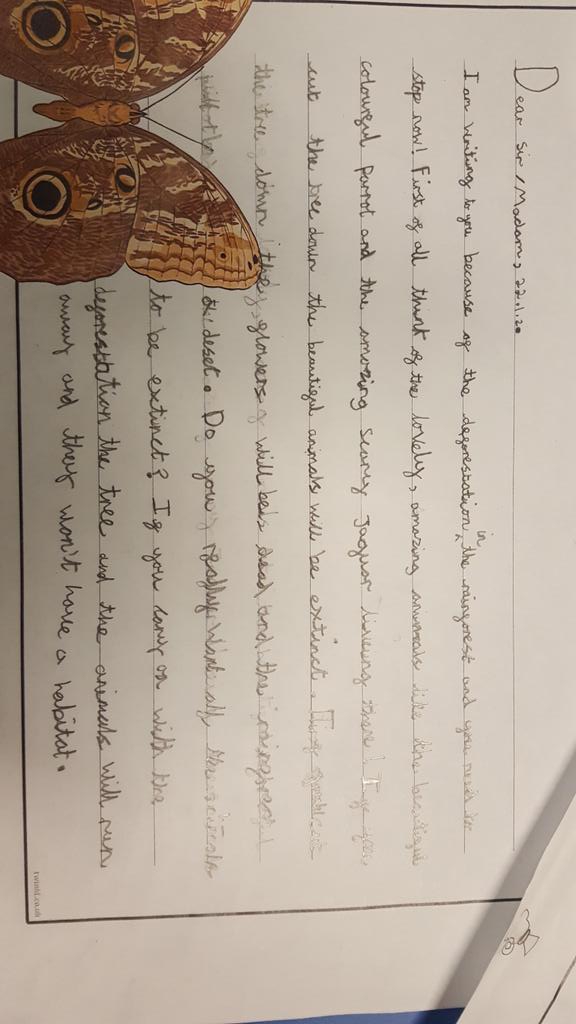 Dear Sir/Madam, 22.1.20
I am writing to you because of the deforestation in the rainforest and you need to
stop now! First of all think of the lovely, amazing animals like the beautiful
colourful parrot and the amazing scary Jaguar liveing there! If you
cut the tree down the beautiful animals will be extinct.
the tree down the flowers will be dead and the rainforest
will be
a deset. Do you really want all the animals
to be extinct? If you carry on with the
deforestation the tree and the animals will run
away and they won't have a habitat.
twinkl.co.uk